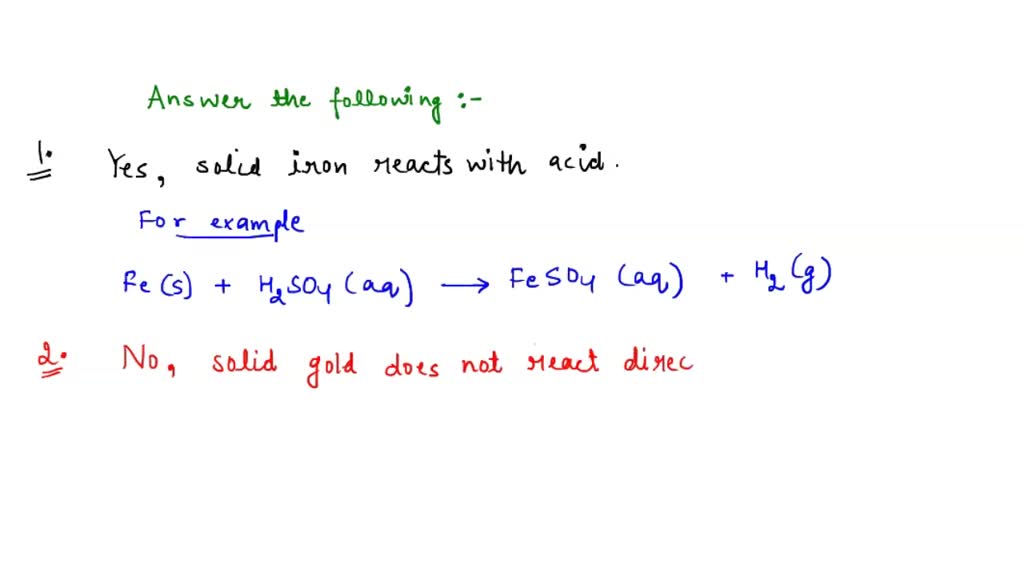 Answer the following :-
1. Yes, solid iron reacts with acid.
For example
Fe (s) + H₂SO₄ (aq) → FeSO₄ (aq) + H₂ (g)
2. No, solid gold does not react direc